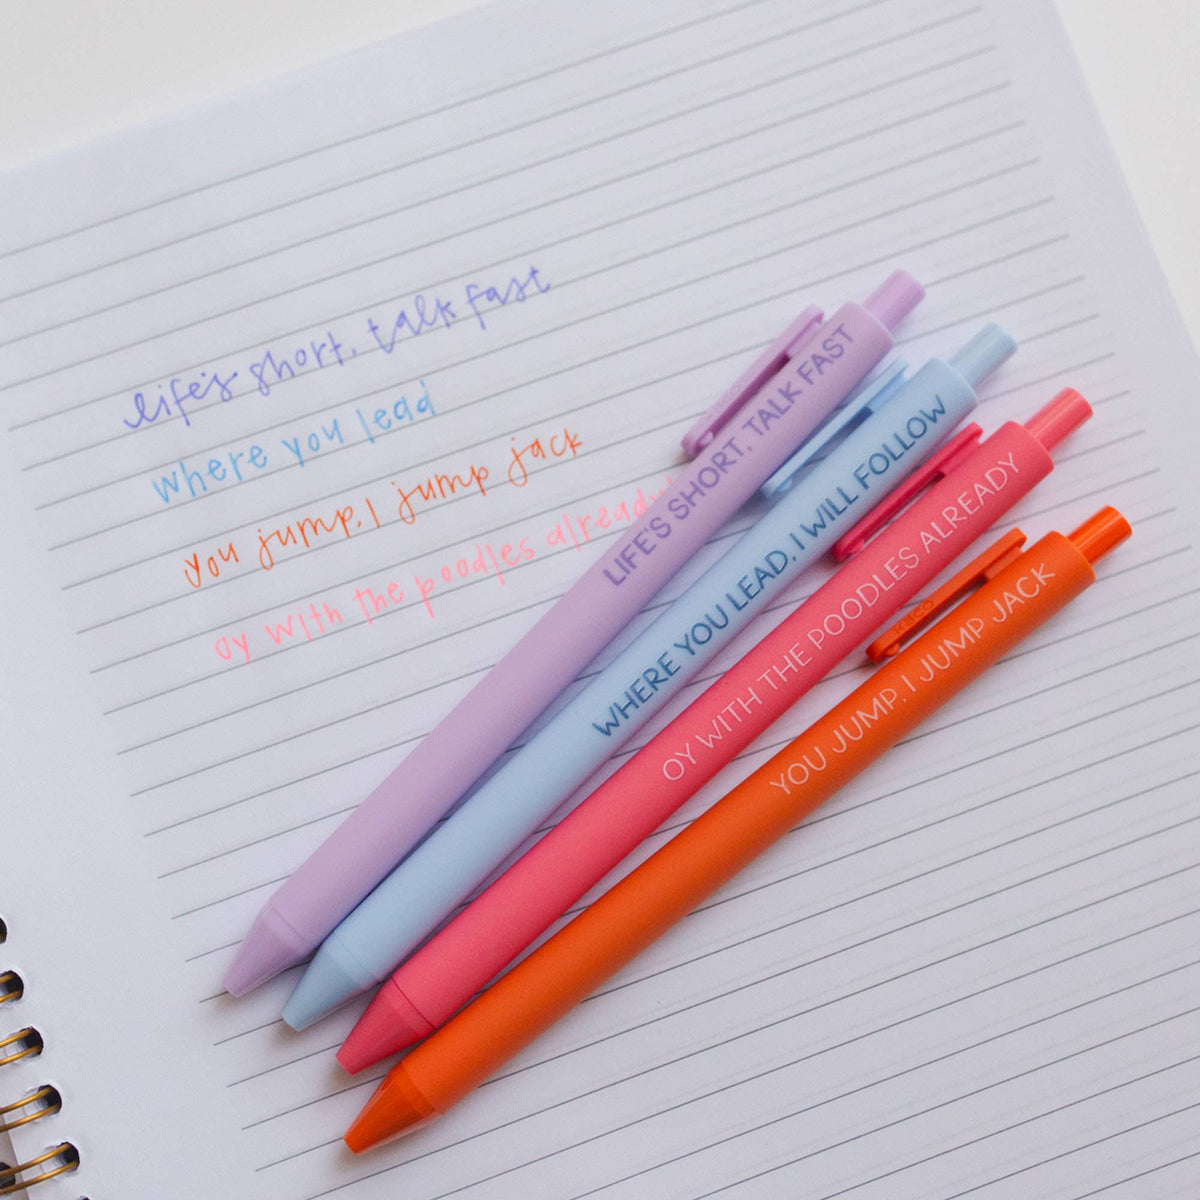 life's short, talk fast
where you lead
you jump, I jump jack
oy with the poodles already
LIFE'S SHORT, TALK FAST
WHERE YOU LEAD, I WILL FOLLOW
OY WITH THE POODLES ALREADY
YOU JUMP, I JUMP JACK
KACO